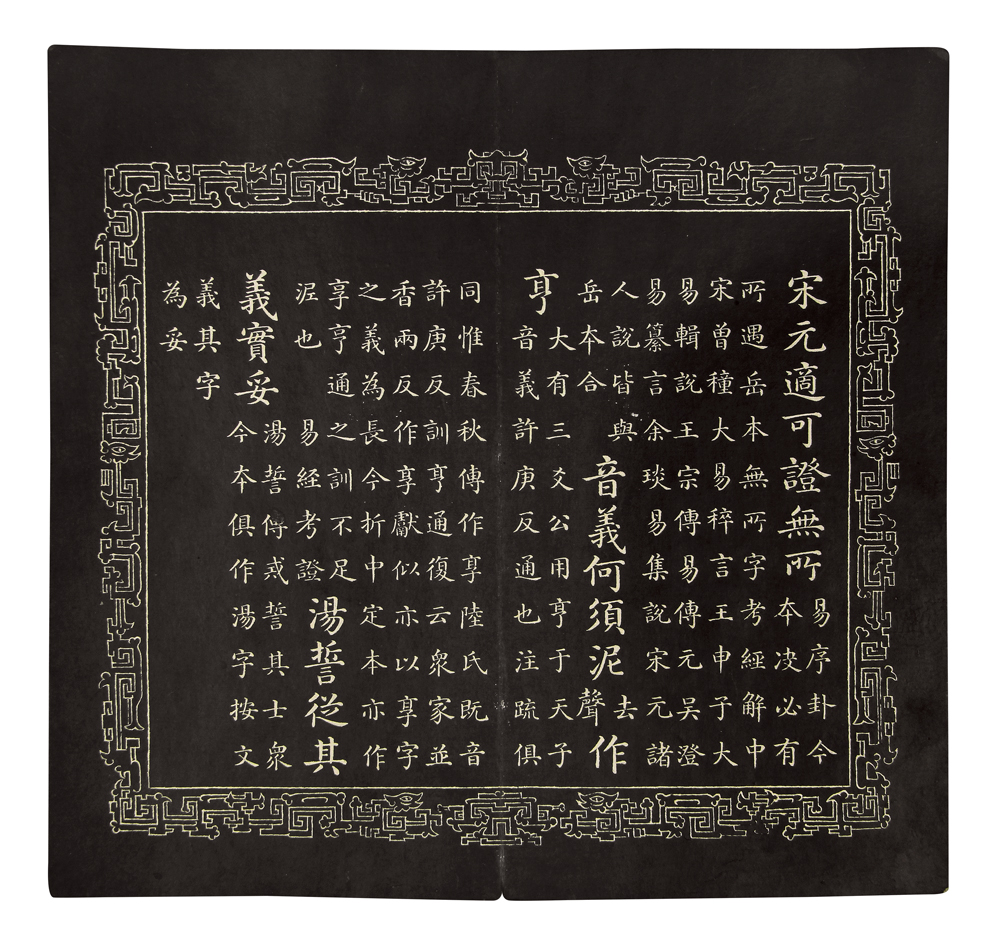 宋元適可證無所易序卦今
本决必有
所遇岳本無所字考經解中
宋曾穜大易稡言王申子大
易輯說王宗傳易傳元吳澄
易纂言余琰易集說宋元諸
人說皆與
岳本合
音義何須泥去聲作
亨
大有三爻公用亨于天子
音義許庚反通也注疏俱
同惟春秋傳作享陸氏既音
許庚反訓亨通復云衆家並
香兩反作享獻似亦以享字
之義為長今折中定本亦作
享亨通之訓不足
泥也 易經考證
湯誓從其
義實妥
湯誓傳或誓其士衆
今本俱作湯字按文
義其字
為妥